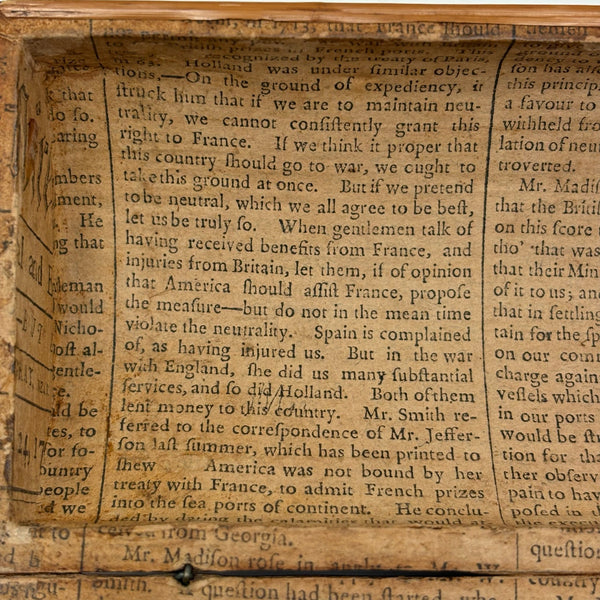 that France should
by the treaty of Paris,
Holland was under similar objec-
tions.—On the ground of expediency, it
ſtruck him that if we are to maintain neu-
trality, we cannot conſiſtently grant this
right to France. If we think it proper that
this country ſhould go to war, we ought to
take this ground at once. But if we pretend
to be neutral, which we all agree to be beſt,
let us be truly ſo. When gentlemen talk of
having received benefits from France, and
injuries from Britain, let them, if of opinion
that America ſhould aſſiſt France, propoſe
the meaſure—but do not in the mean time
violate the neutrality. Spain is complained
of, as having injured us. But in the war
with England, ſhe did us many ſubſtantial
ſervices, and ſo did Holland. Both of them
lent money to this country. Mr. Smith re-
ferred to the correſpondence of Mr. Jeffer-
ſon laſt ſummer, which has been printed to
ſhew America was not bound by her
treaty with France, to admit French prizes
into the ſea ports of continent. He conclu-
ded by
from Georgia.
Mr. Madiſon roſe in to Mr. W.
Smith. If had been ſtarted, who
that
do ſo.
mbers
He
ng that
would
Nicho-
oſt al-
entle-
be
to
or fo-
ountry
people
d we
ſon has
this princip
a favour to
withheld from
lation of neut
troverted.
Mr. Madiſ
that the Britiſ
on this ſcore t
tho' that was
that their Min
of it to us; an
that in ſettling
tain for the ſp
on our com
charge again
veſſels which
in our ports
would be ſt
tion for tha
ther obſerv
pain to hav
poſed in
queſtion
country